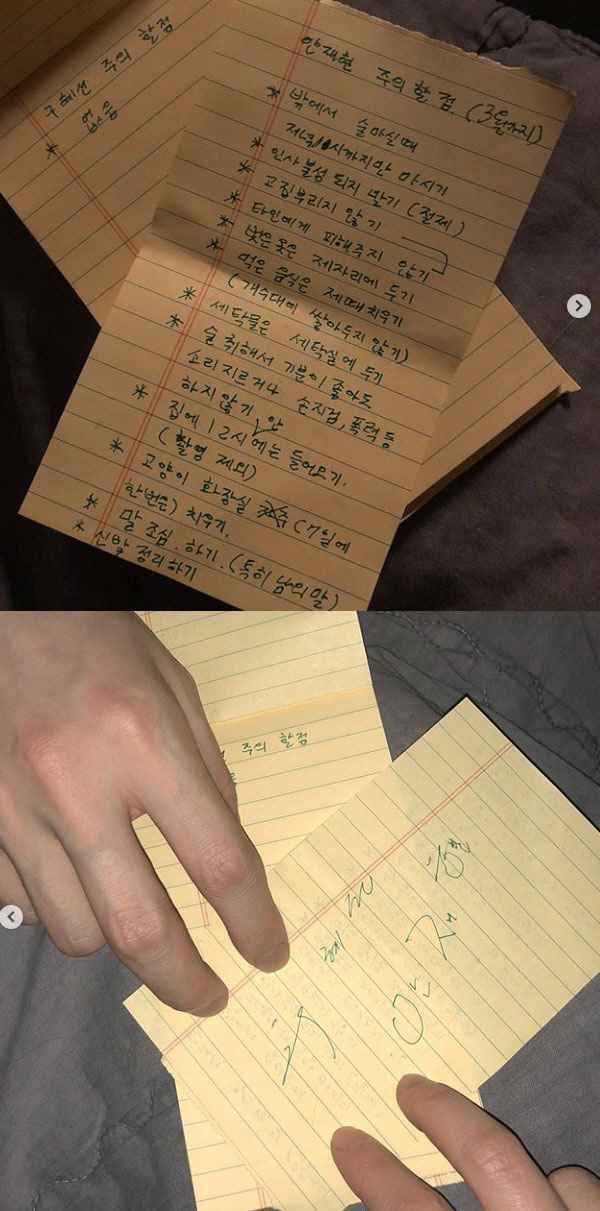 구혜선 주의 할점
* 없음
안재현 주의 할 점. (3월까지)
* 밖에서 술마실때
저녁 11시까지만 마시기
* 인사불성 되지 말기 (절제)
* 고집부리지 않기
* 타인에게 피해주지 않기
* 벗은 옷은 제자리에 두기
* 먹은 음식은 제때 치우기
(개수대에 쌓아두지 않기)
* 세탁물은 세탁실에 두기
* 술 취해서 기분이 좋아도
소리지르거나 손지검, 폭력 등
하지 않기
* 집에 12시 안에는 들어오기.
(촬영 제외)
* 고양이 화장실 (7일에
한번은) 치우기.
* 말 조심. 하기. (특히 남의 말)
* 신발 정리하기
주의 할점
구혜선
안재현